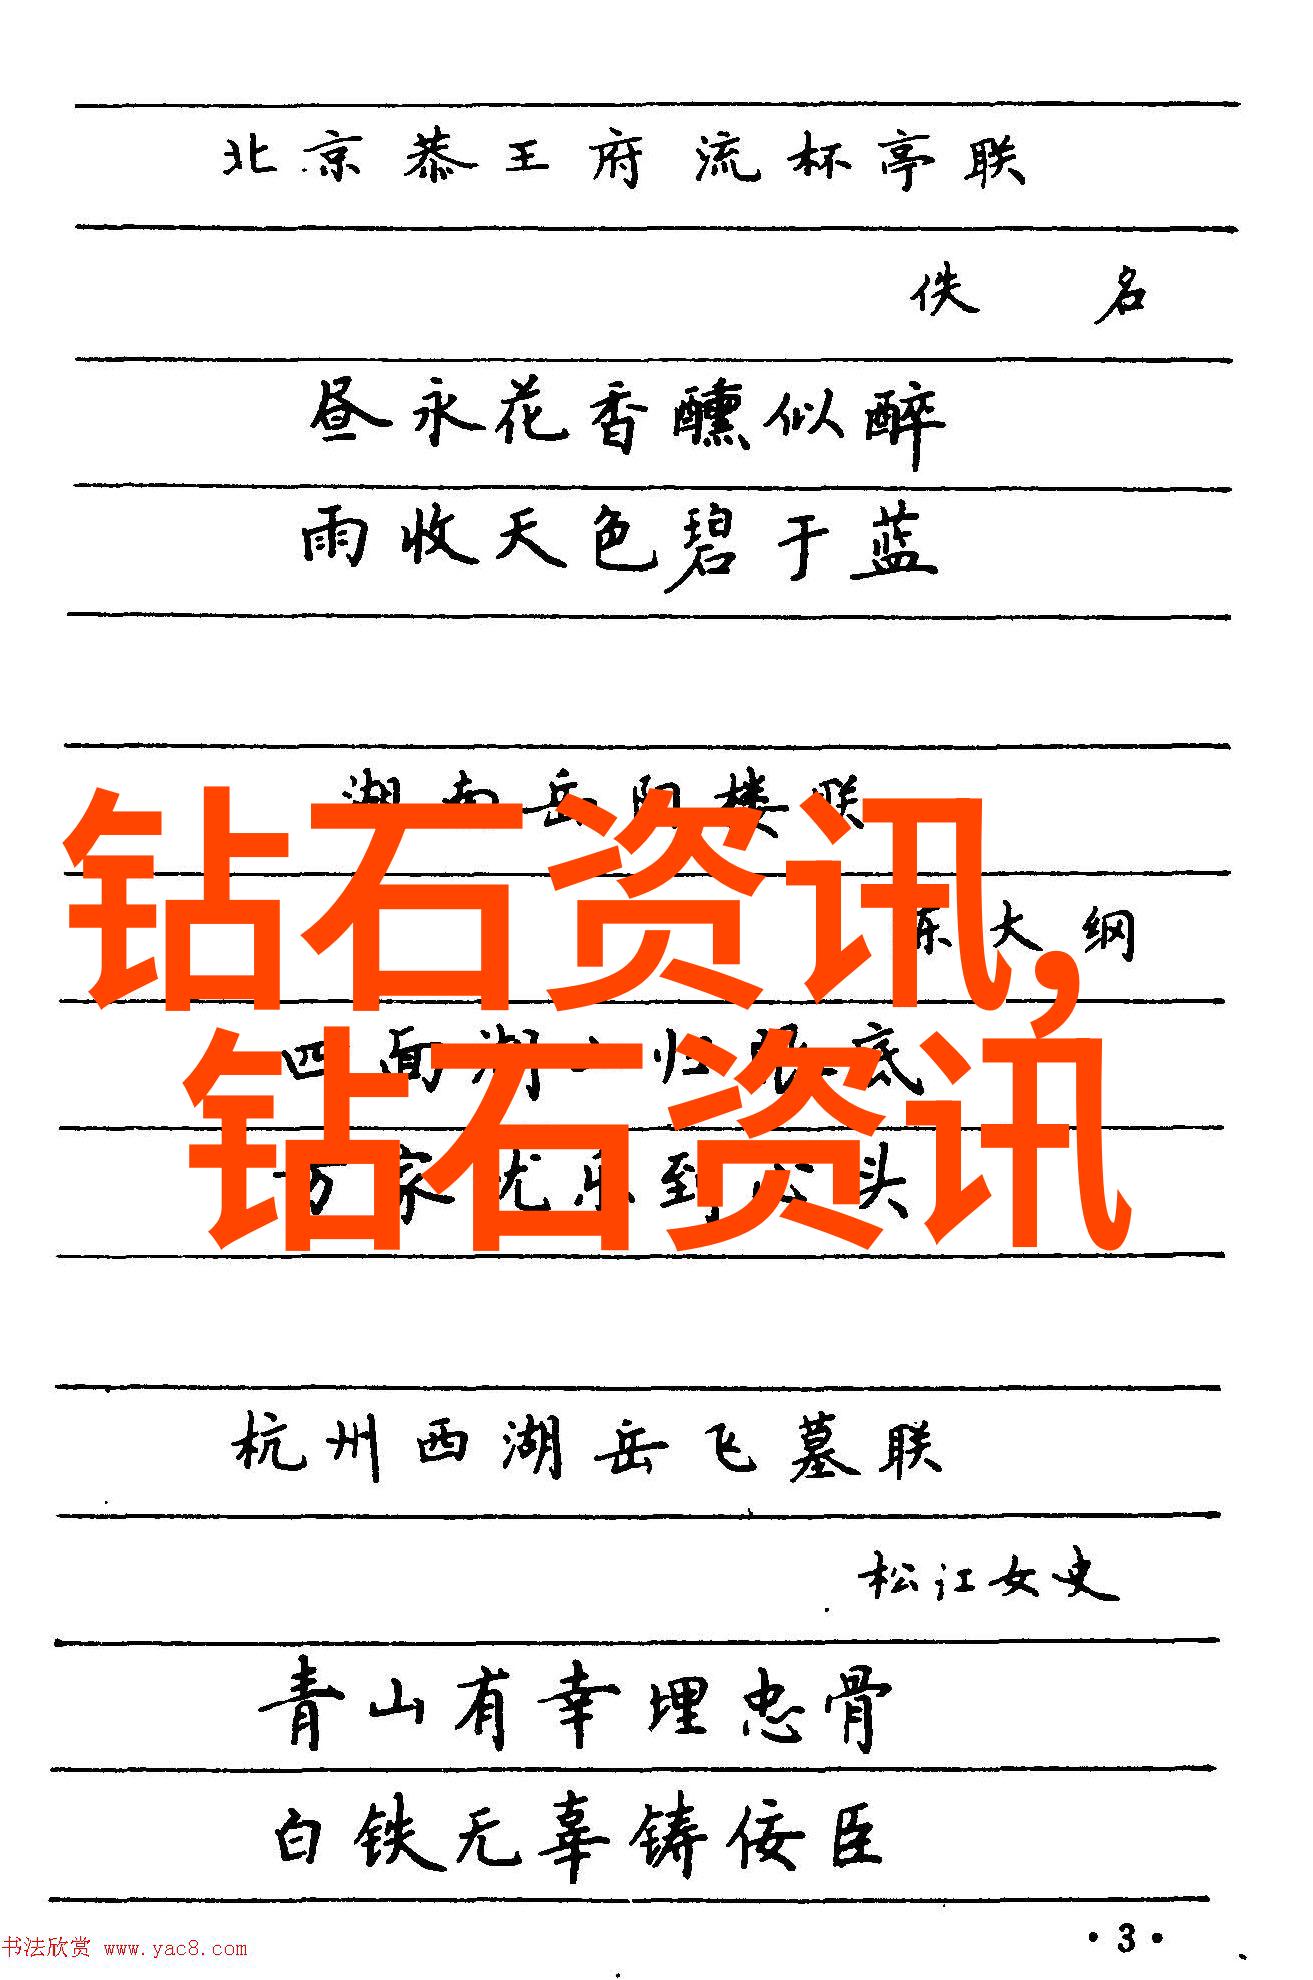 北京恭王府流杯亭联
佚名
昼永花香醺似醉
雨收天色碧于蓝
湖南岳阳楼联
大纲
钻石资讯,
四面湖山归眼底
钻石资讯
万家忧乐到心头
杭州西湖岳飞墓联
松江女史
青山有幸埋忠骨
白铁无辜铸佞臣
·3·
书法欣赏 www.yac8.com